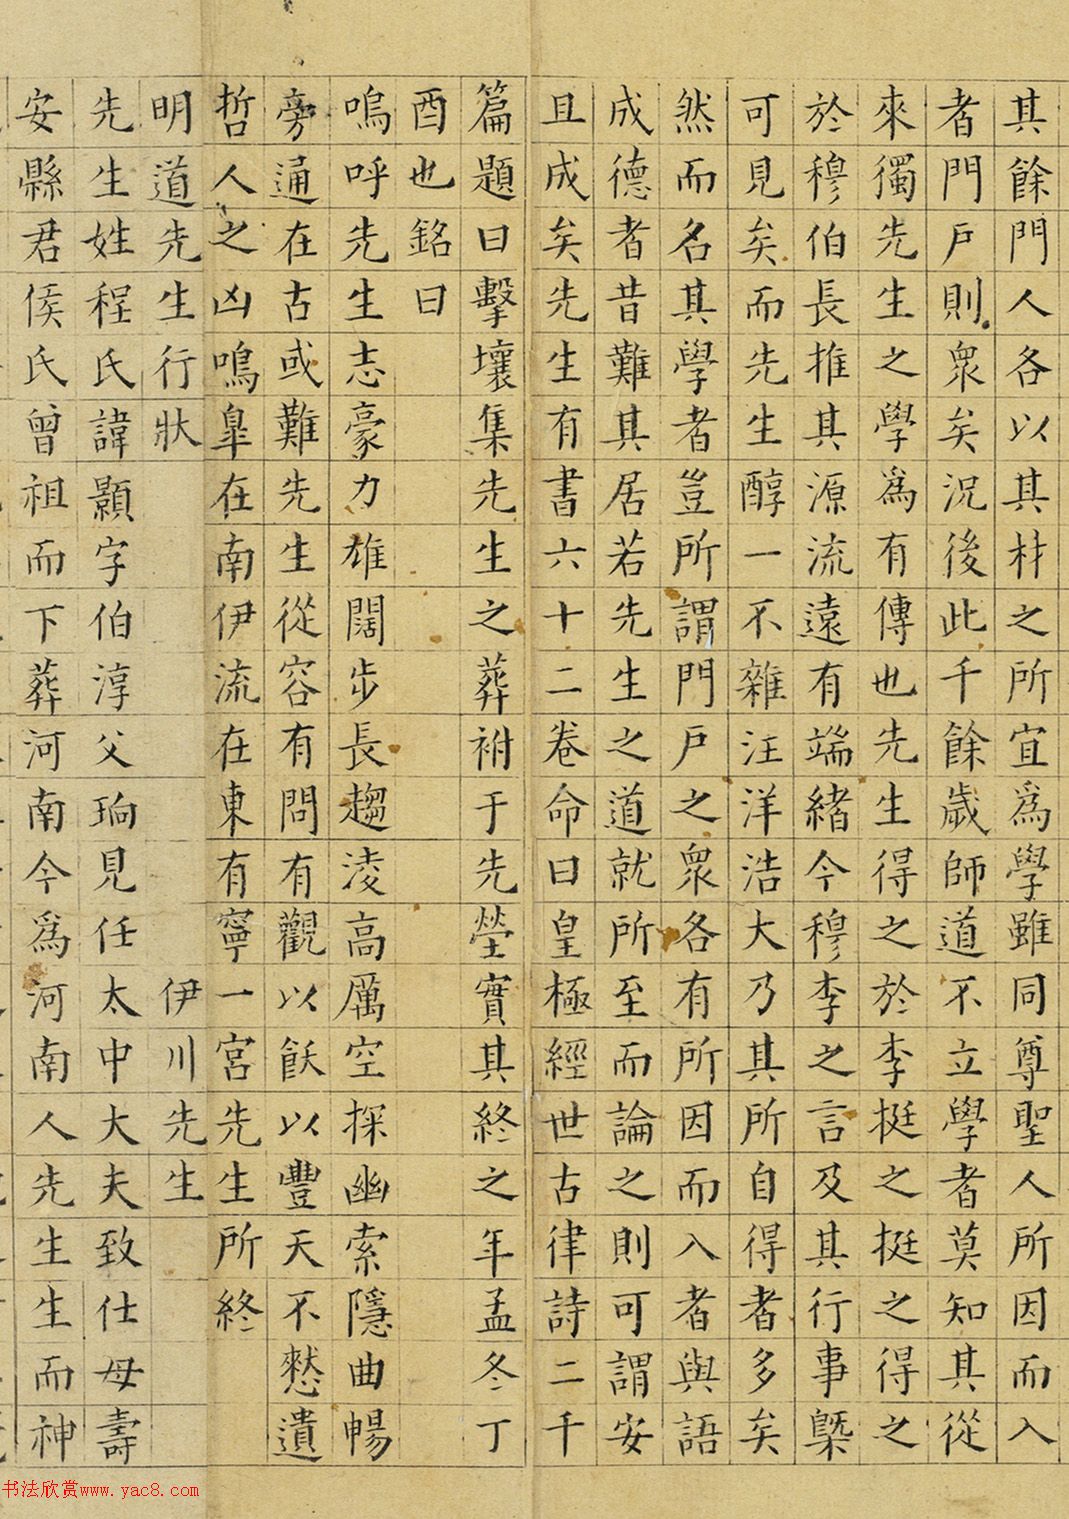 其餘門人各以其材之所宜爲學雖同尊聖人所因而入
者門戶則眾矣況後此千餘歲師道不立學者莫知其從
來獨先生之學爲有傳也先生得之於李挺之挺之得之
於穆伯長推其源流遠有端緒今穆李之言及其行事槩
可見矣而先生醇一不雜汪洋浩大乃其所自得者多矣
然而名其學者豈所謂門戶之眾各有所因而入者與語
成德者昔難其居若先生之道就所至而論之則可謂安
且成矣先生有書六十二卷命曰皇極經世古律詩二千
篇題曰擊壤集先生之葬祔于先塋實其終之年孟冬丁
酉也銘曰
嗚呼先生志豪力雄闊步長趨凌高厲空探幽索隱曲暢
旁通在古或難先生從容有問有觀以飫以豐天不憖遺
哲人之凶鳴臯在南伊流在東有寧一宮先生所終
明道先生行狀 伊川先生
先生姓程氏諱顥字伯淳父珦見任太中大夫致仕母壽
安縣君侯氏曾祖而下葬河南今爲河南人先生生而神
书法欣赏www.yac8.com